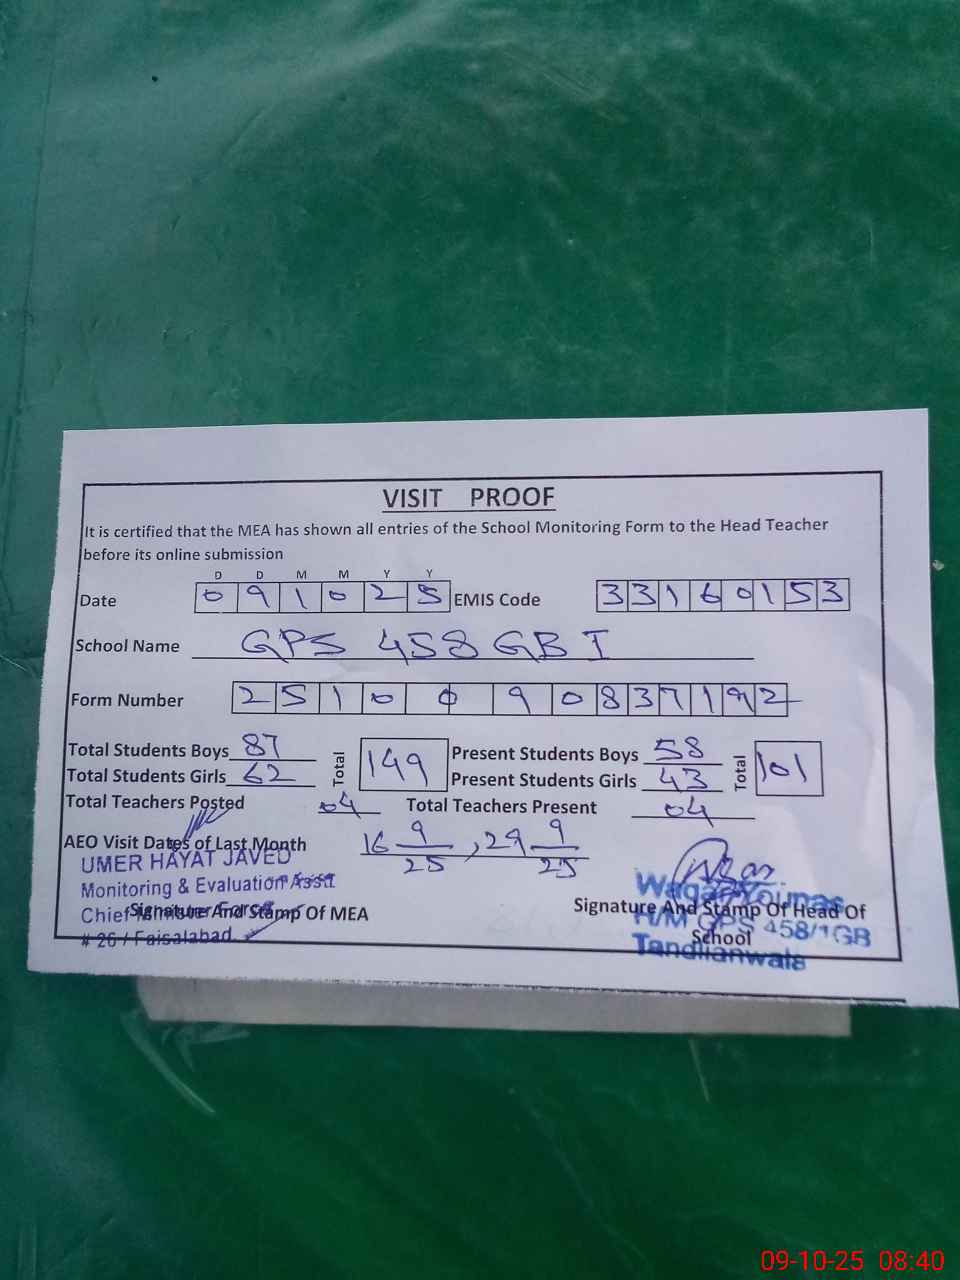 VISIT PROOF
It is certified that the MEA has shown all entries of the School Monitoring Form to the Head Teacher
before its online submission
D D M M Y Y
Date 0 9 1 0 2 5 EMIS Code 3 3 1 6 0 1 5 3
School Name GPS 458 GB I
Form Number 2 5 1 0 0 9 0 8 3 7 1 9 2
Total Students Boys 87 Total 149 Present Students Boys 58 Total 101
Total Students Girls 62 Present Students Girls 43
Total Teachers Posted 04 Total Teachers Present 04
AEO Visit Dates of Last Month 16 9/25, 29 9/25
UMER HAYAT JAVED
Monitoring & Evaluation Asstt
Chief Minister Force
# 26 / Faisalabad.
Signature And Stamp Of MEA
Signature And Stamp Of Head Of
School
Waqar Younas
H/M GPS 458/1GB
Tandlianwala
09-10-25 08:40